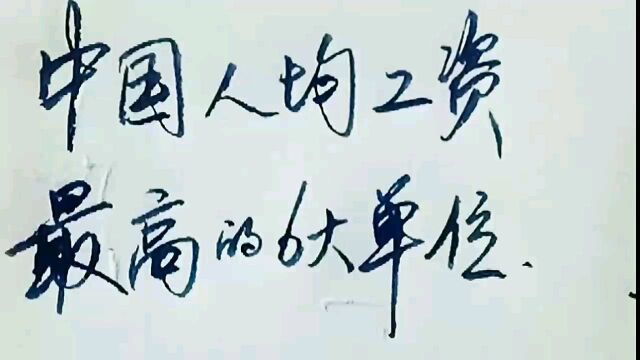 中国人均工资
最高的6大单位.